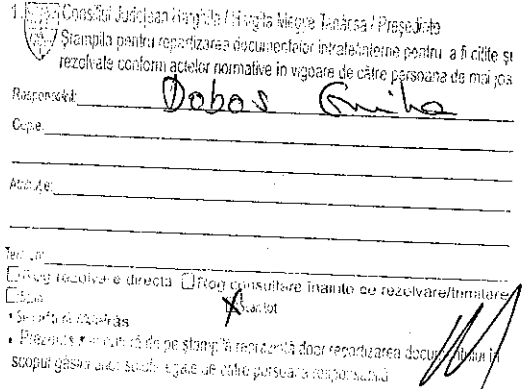 1. Consiliul Județean Harghita / Hargita Megye Tanácsa / Președinte
Ștampila pentru repartizarea documentelor intrate/interne pentru a fi citite și
rezolvate conform actelor normative în vigoare de către persoana de mai jos
Responsabil: Dobos
Copie:
Atribuție:
Termen:
Rog rezolvare directă Rog consultare înainte de rezolvare/trimitere
Scanat tot
răs
de pe ștampilă reprezintă doar repartizarea documentului în
scopul găsirii unor soluții legale de către persoana responsabilă